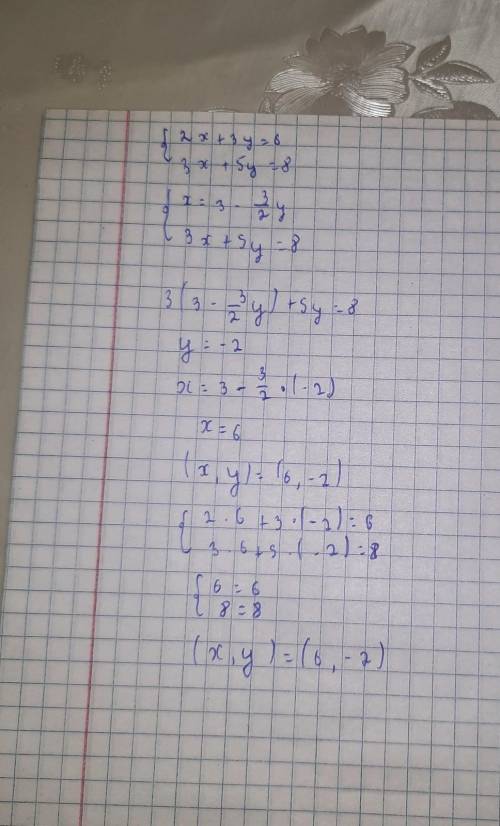 { 2x + 3y = 6
3x + 5y = 8
{ x = 3 - 3/2 y
3x + 5y = 8
3(3 - 3/2 y) + 5y = 8
y = -2
x = 3 - 3/2 · (-2)
x = 6
(x, y) = (6, -2)
{ 2 · 6 + 3 · (-2) = 6
3 · 6 + 5 · (-2) = 8
{ 6 = 6
8 = 8
(x, y) = (6, -2)